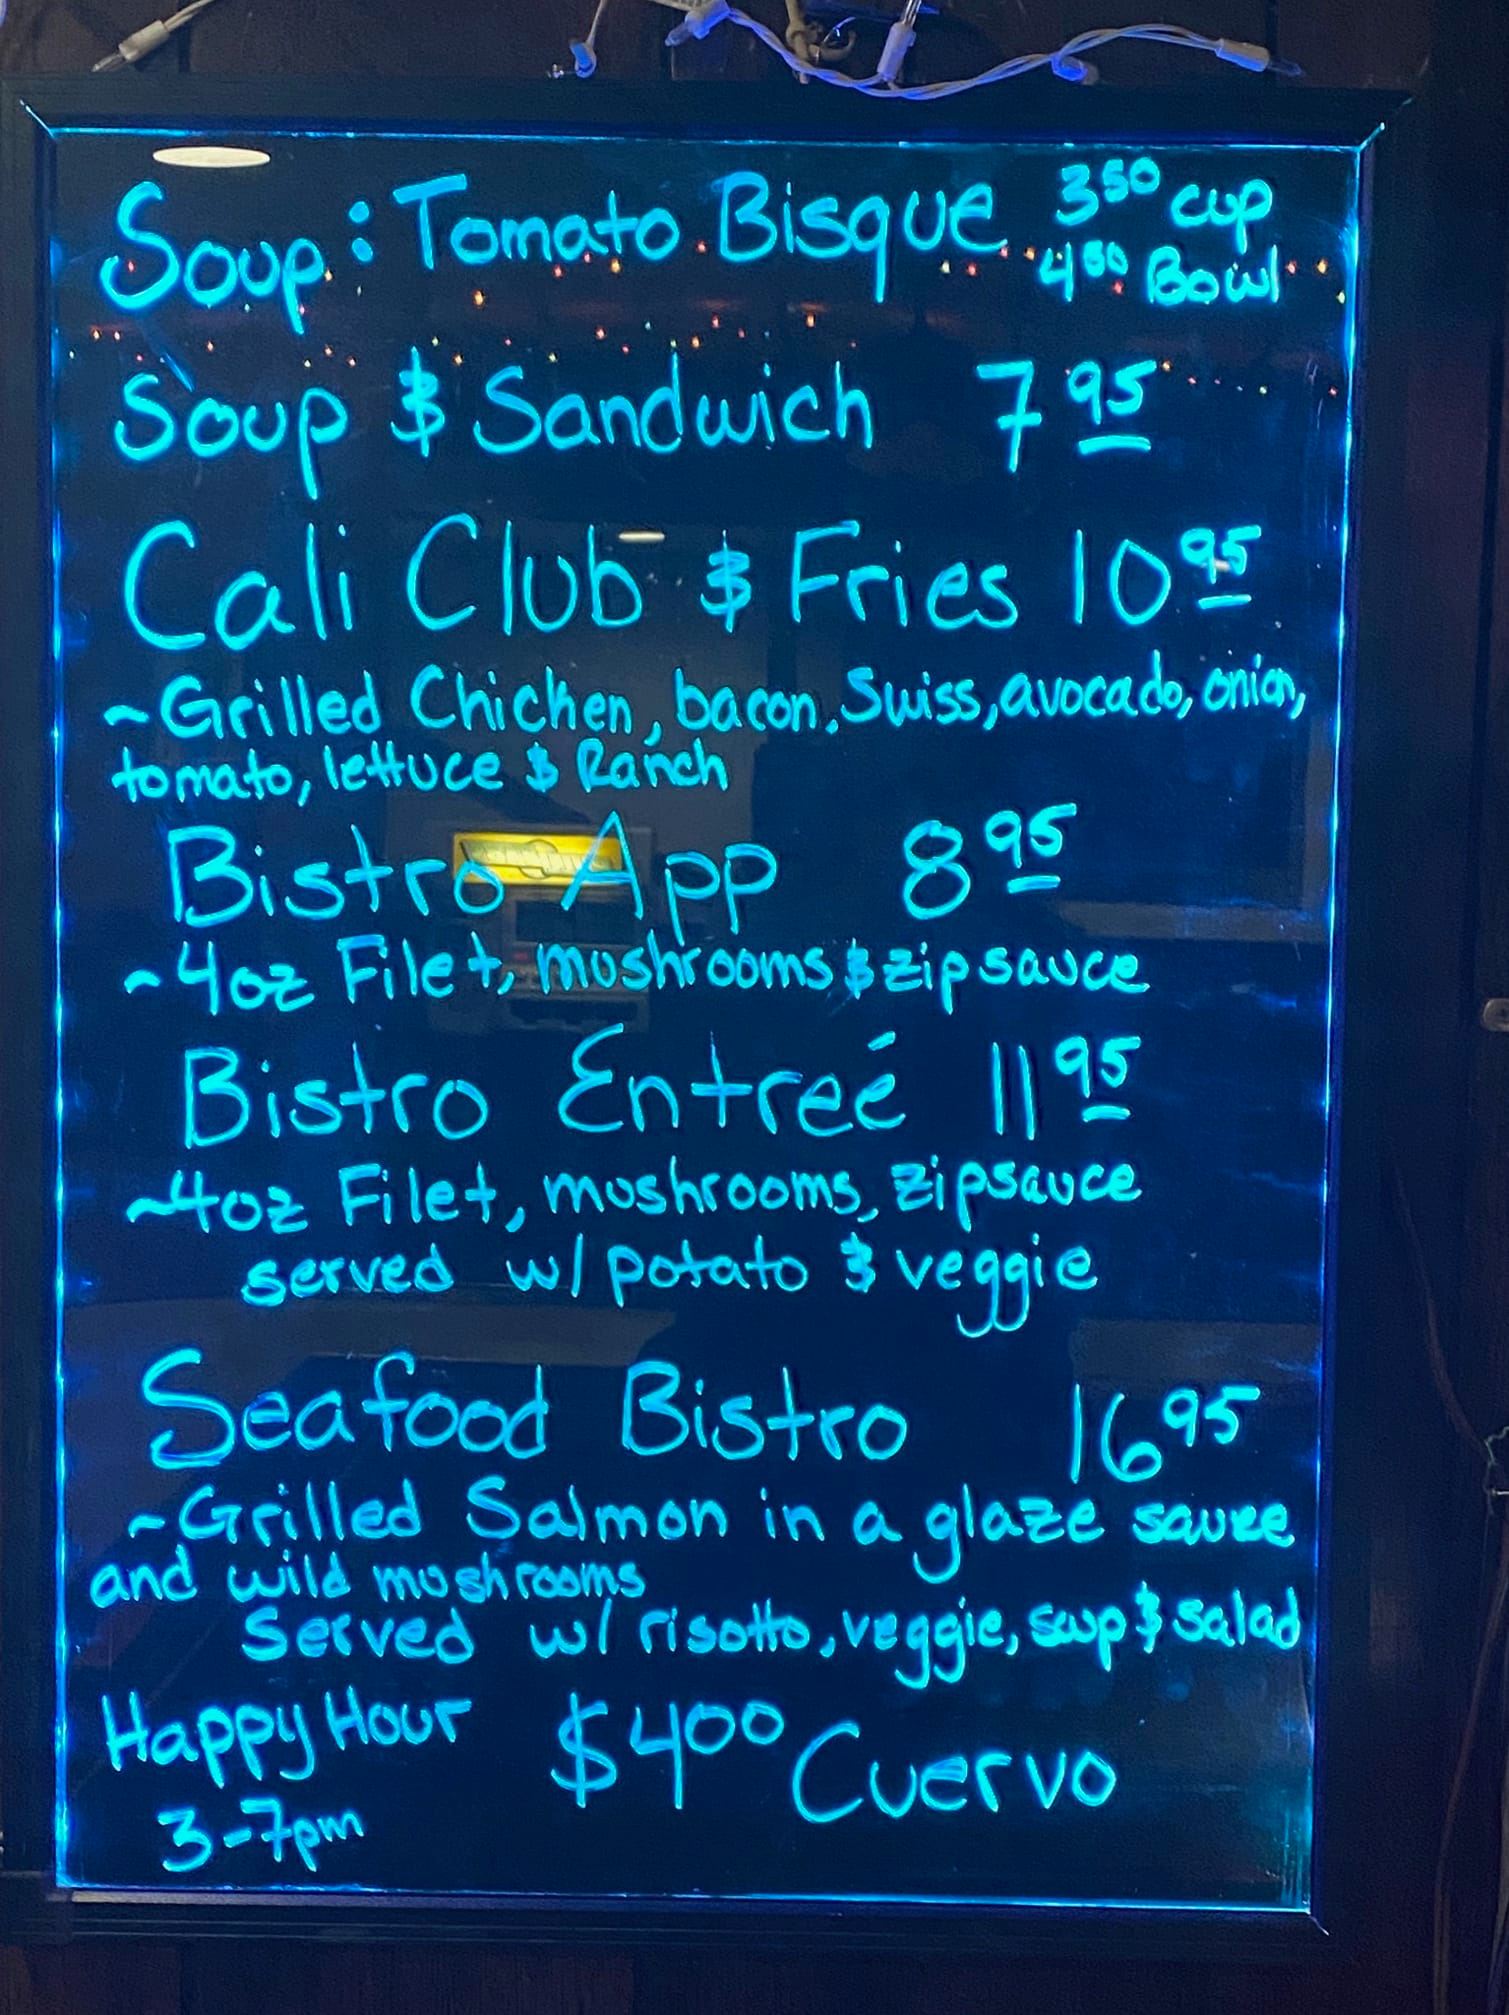 Soup: Tomato Bisque 3.50 cup
4.50 Bowl
Soup & Sandwich 7 95
Cali Club & Fries 10 95
~Grilled Chicken, bacon, Swiss, avocado, onion,
tomato, lettuce & Ranch
Bistro App 8 95
~4oz Filet, mushrooms & zip sauce
Bistro Entreé 11 95
~4oz Filet, mushrooms, zip sauce
served w/ potato & veggie
Seafood Bistro 16 95
~Grilled Salmon in a glaze sauce
and wild mushrooms
Served w/ risotto, veggie, soup & salad
Happy Hour $4 00 Cuervo
3-7pm